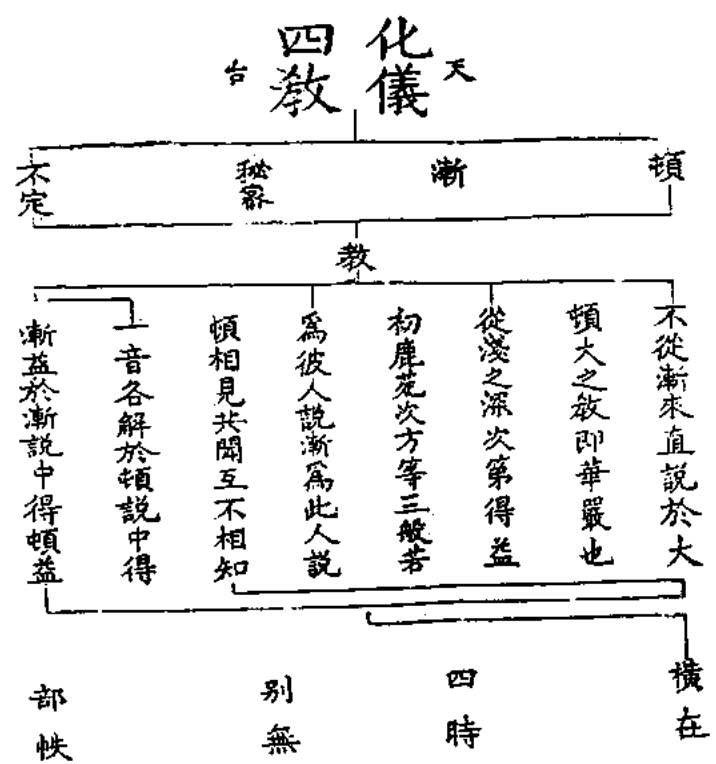 天
化儀
四教
台
頓
漸
秘密
不定
教
不從漸來直說於大
頓大之教即華嚴也
從淺之深次第得益
初鹿苑次方等三般若
為彼人說漸為此人說
頓相見共聞互不相知
一音各解於頓說中得
漸益於漸說中得頓益
橫在
四時
別無
部帙